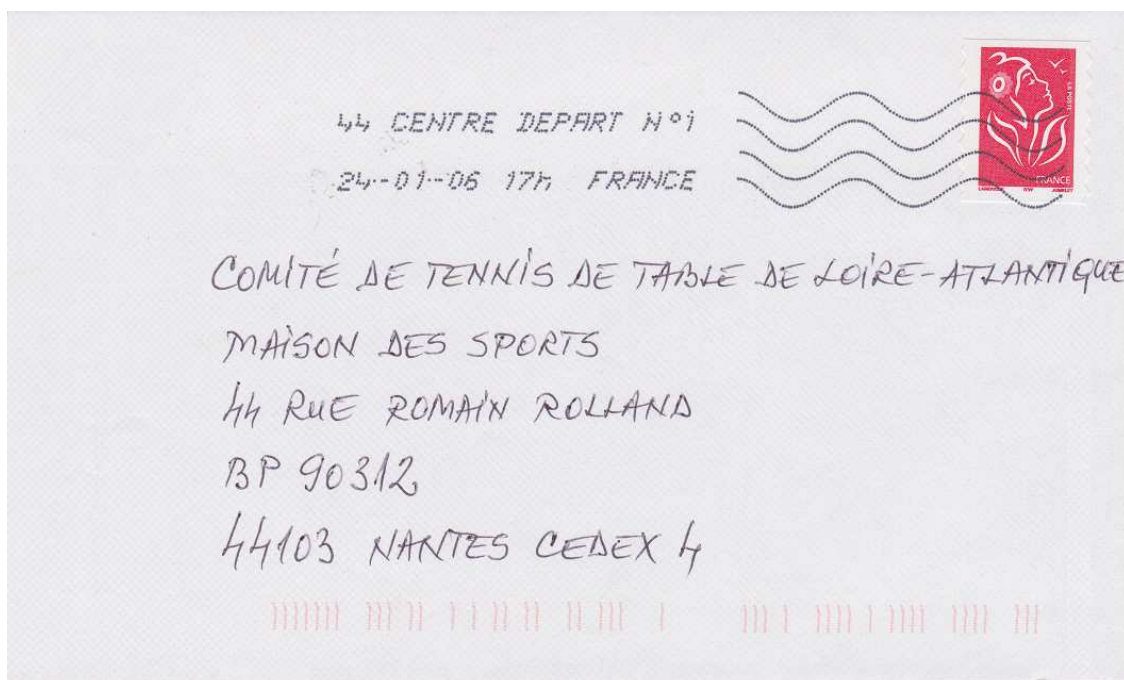 44 CENTRE DEPART N°1
24-01-06 17h FRANCE
LA POSTE
FRANCE
COMITÉ DE TENNIS DE TABLE DE LOIRE-ATLANTIQUE
MAISON DES SPORTS
44 RUE ROMAIN ROLLAND
BP 90312
44103 NANTES CEDEX 4